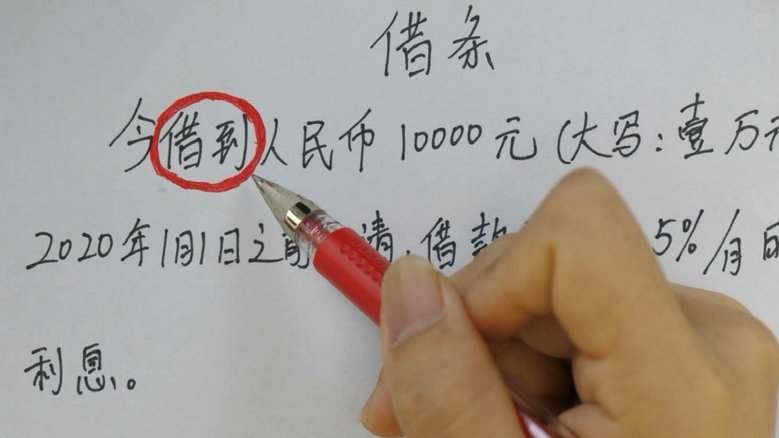 借条
今借到人民币10000元(大写:壹万元
2020年1月1日之前 清,借款 5%/月的
利息。